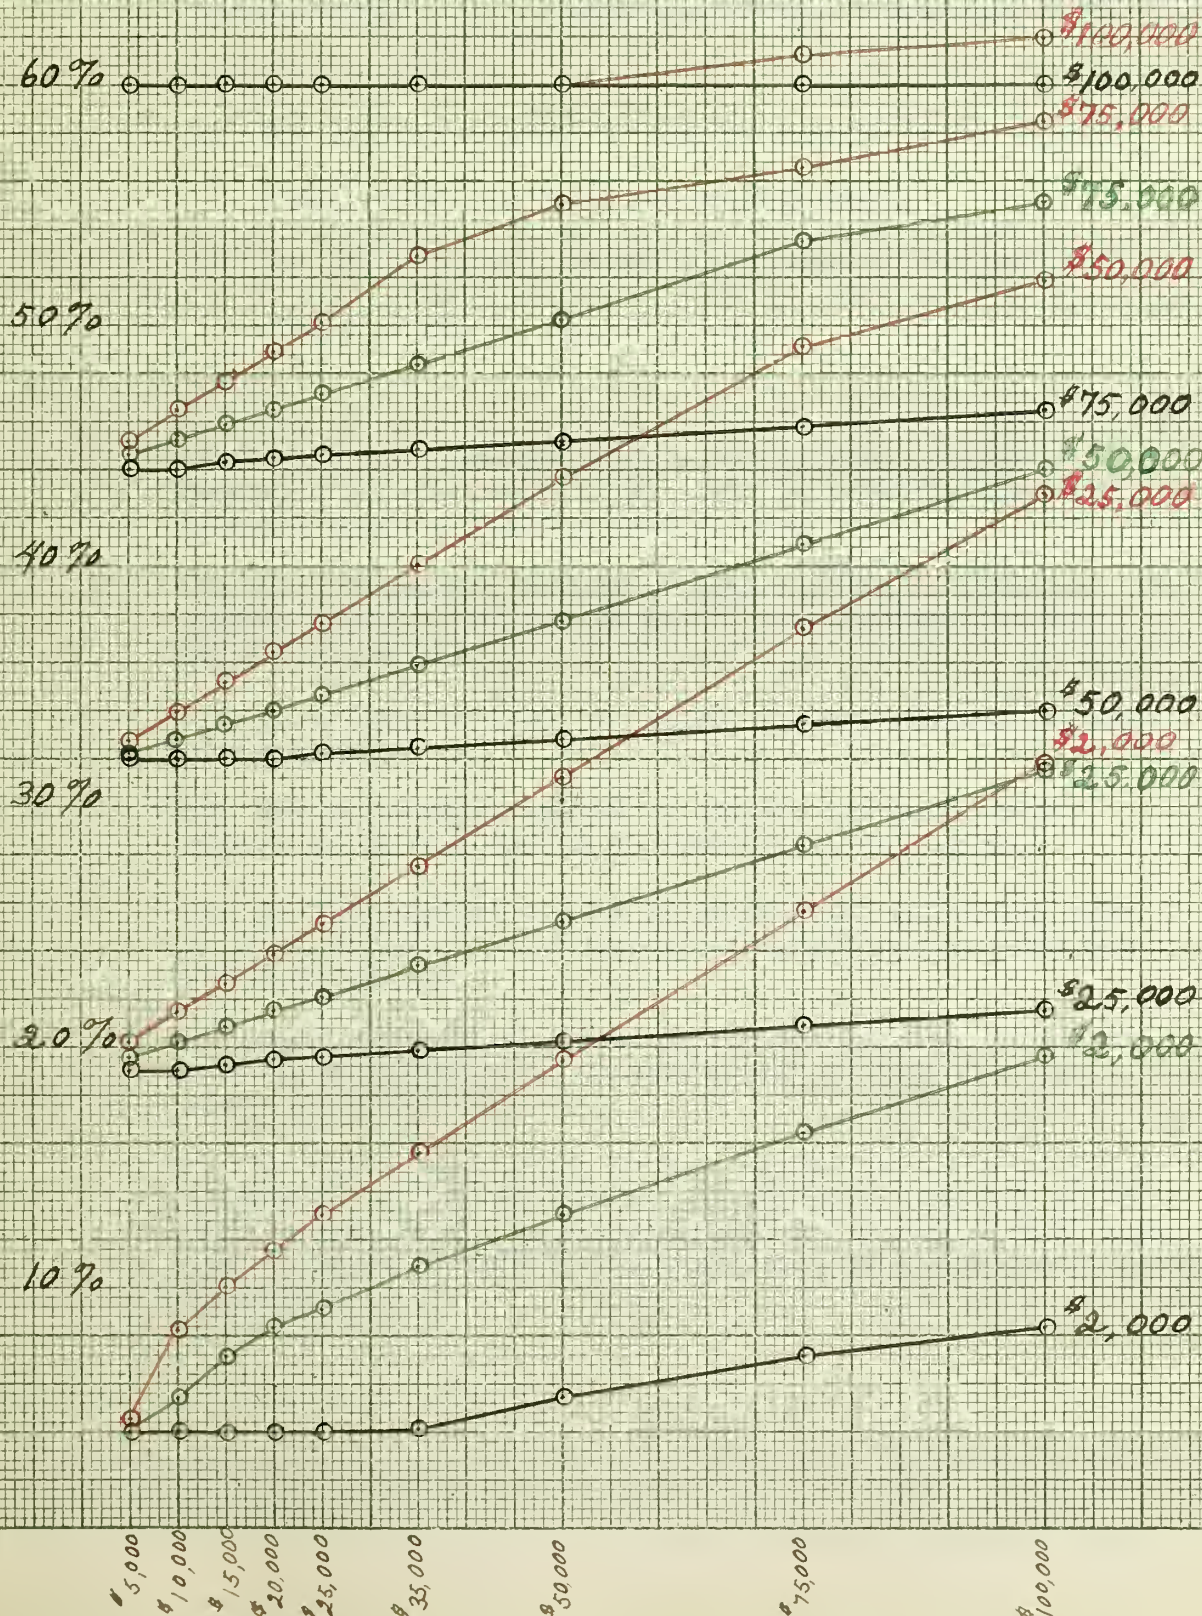 $100,000
60%
$100,000
$75,000
$75,000
$50,000
50%
$75,000
$50,000
$25,000
40%
$50,000
$2,000
$25,000
30%
$25,000
20%
$2,000
10%
$2,000
$5,000
$10,000
$15,000
$20,000
$25,000
$35,000
$50,000
$75,000
$100,000